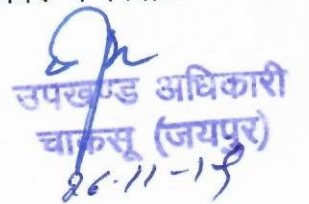 उपखण्ड अधिकारी
चाकसू (जयपुर)
26-11-19